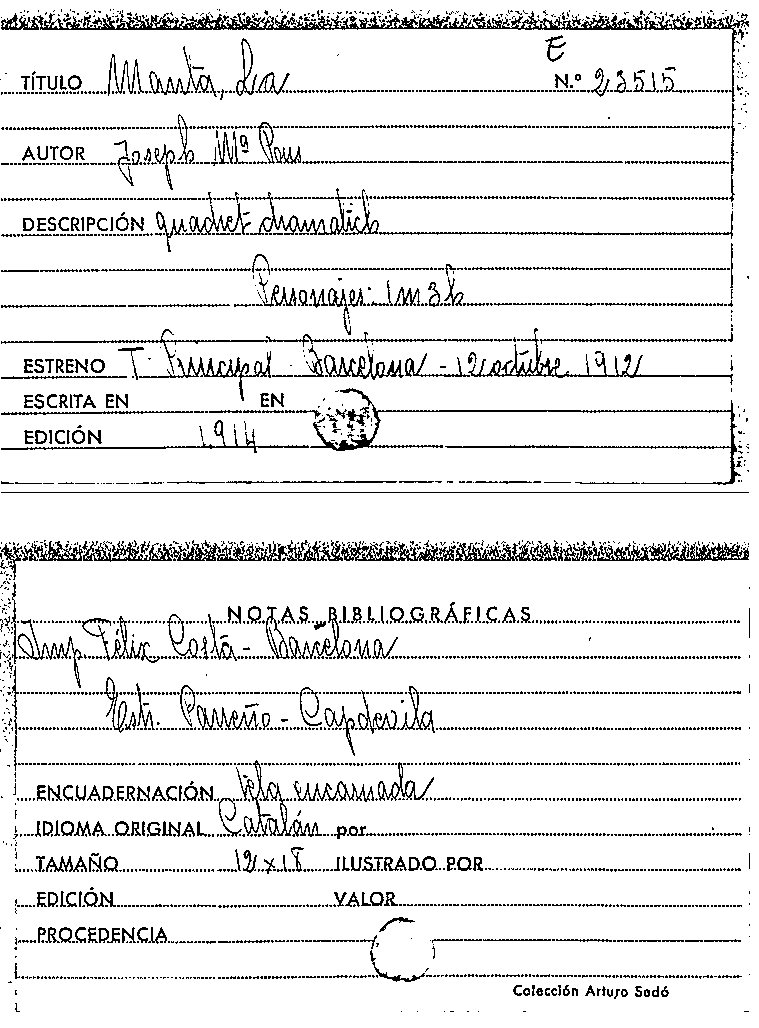 E
TÍTULO Manta, La N.º 23515
AUTOR Joseph Mª Pous
DESCRIPCIÓN quadret dramatich
Personajes: 1m 3h
ESTRENO T. Principal - Barcelona - 12 octubre 1912
ESCRITA EN EN
EDICIÓN 1914
NOTAS BIBLIOGRÁFICAS
Imp Félix Costa - Barcelona
Estr. Parreño - Capdevila
ENCUADERNACIÓN tela encarnada
IDIOMA ORIGINAL Catalán por
TAMAÑO 12 x 18 ILUSTRADO POR
EDICIÓN VALOR
PROCEDENCIA
Colección Arturo Sedó